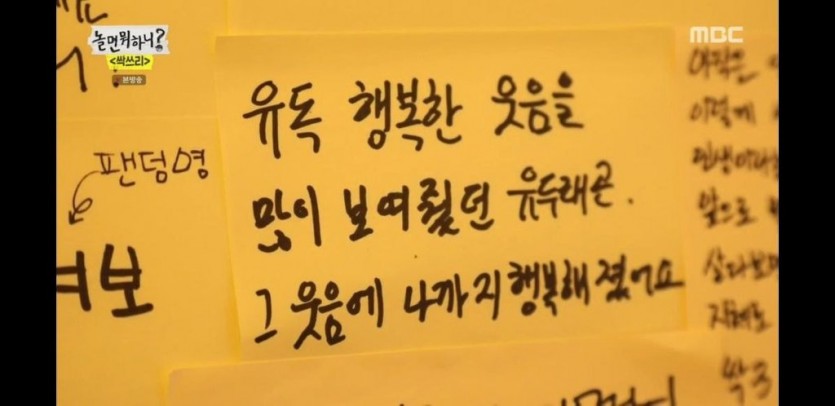 놀면 뭐하니?
<싹쓰리>
본방송
MBC
유독 행복한 웃음을
많이 보여줬던 유두래곤.
그 웃음에 나까지 행복해졌어요
팬덤명
보
이렇게
앞으로
살다보